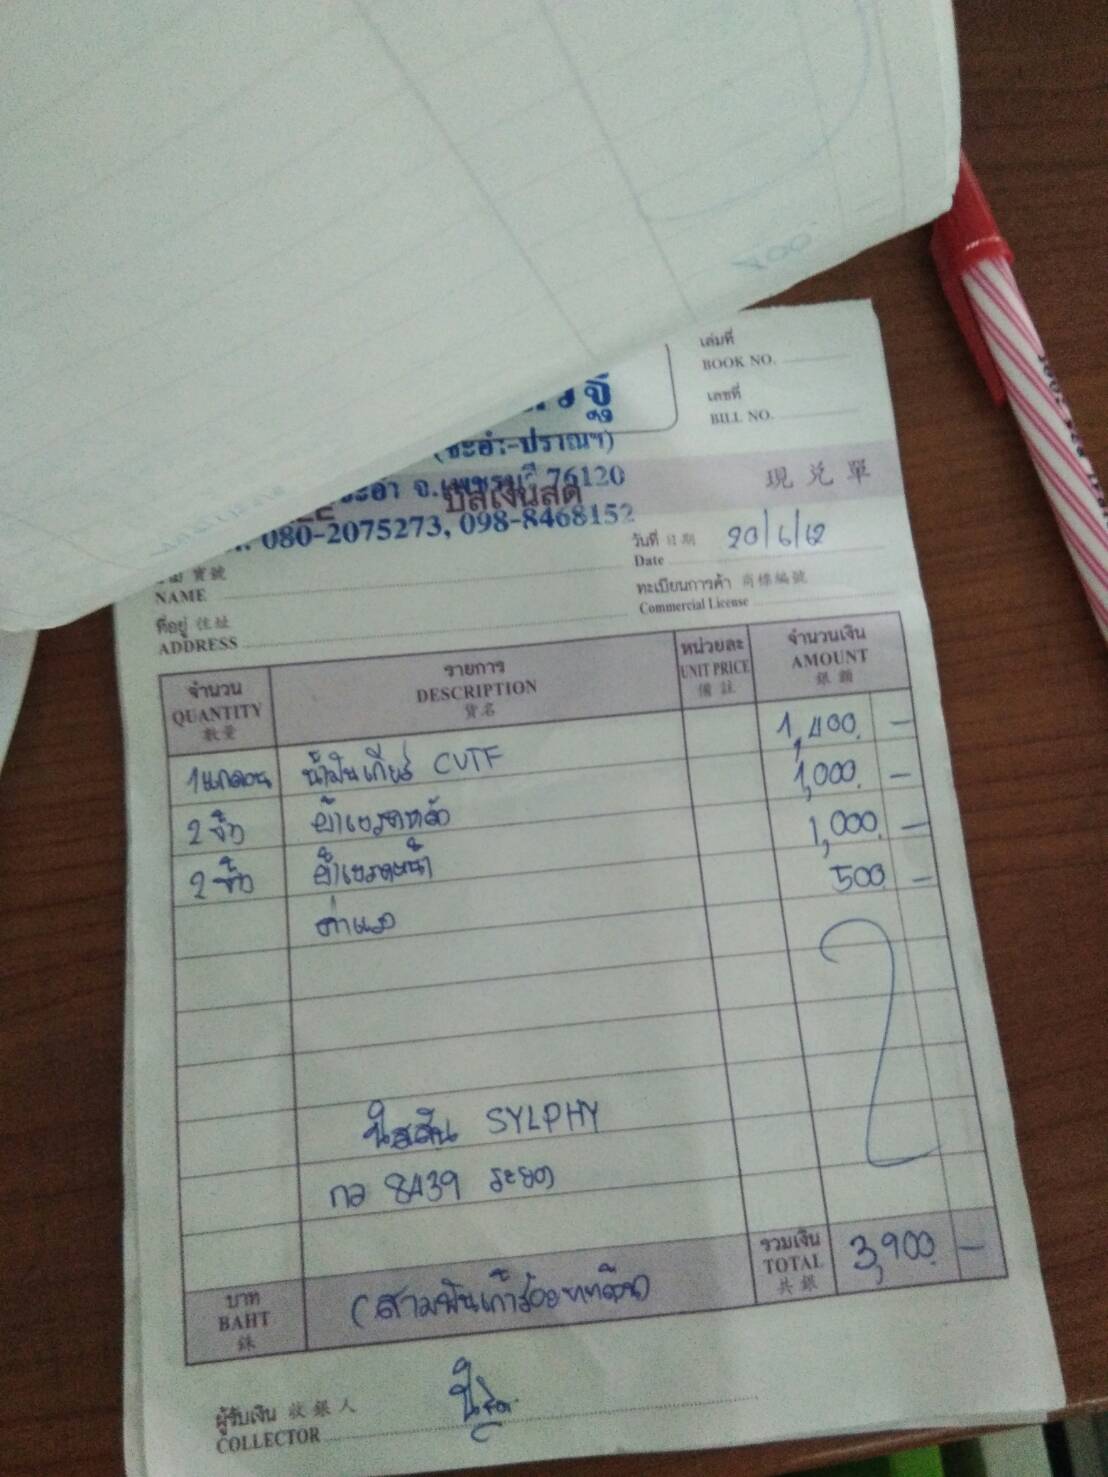 เล่มที่
BOOK NO.
เลขที่
BILL NO.
(ชะอำ-ปราณฯ)
ชะอำ จ.เพชรบุรี 76120
บิลเงินสด
現兑單
080-2075273, 098-8468152
วันที่ 日期 20/6/62
Date
寶號
NAME
ทะเบียนการค้า 商標編號
Commercial License
ที่อยู่ 住址
ADDRESS
จำนวน รายการ หน่วยละ จำนวนเงิน
QUANTITY DESCRIPTION UNIT PRICE AMOUNT
數量 貨名 備註 銀額
1แกลอน น้ำมันเกียร์ CVTF 1,400 -
2 ชิ้น ผ้าเบรคหลัง 1,000 -
2 ชิ้น ผ้าเบรคหน้า 1,000 -
ค่าแรง 500 -
นิสสัน SYLPHY
กอ 8439 ระยอง
รวมเงิน
TOTAL 3,900 -
共銀
บาท
BAHT (สามพันเก้าร้อยบาทถ้วน)
銖
ผู้รับเงิน 收銀人
COLLECTOR